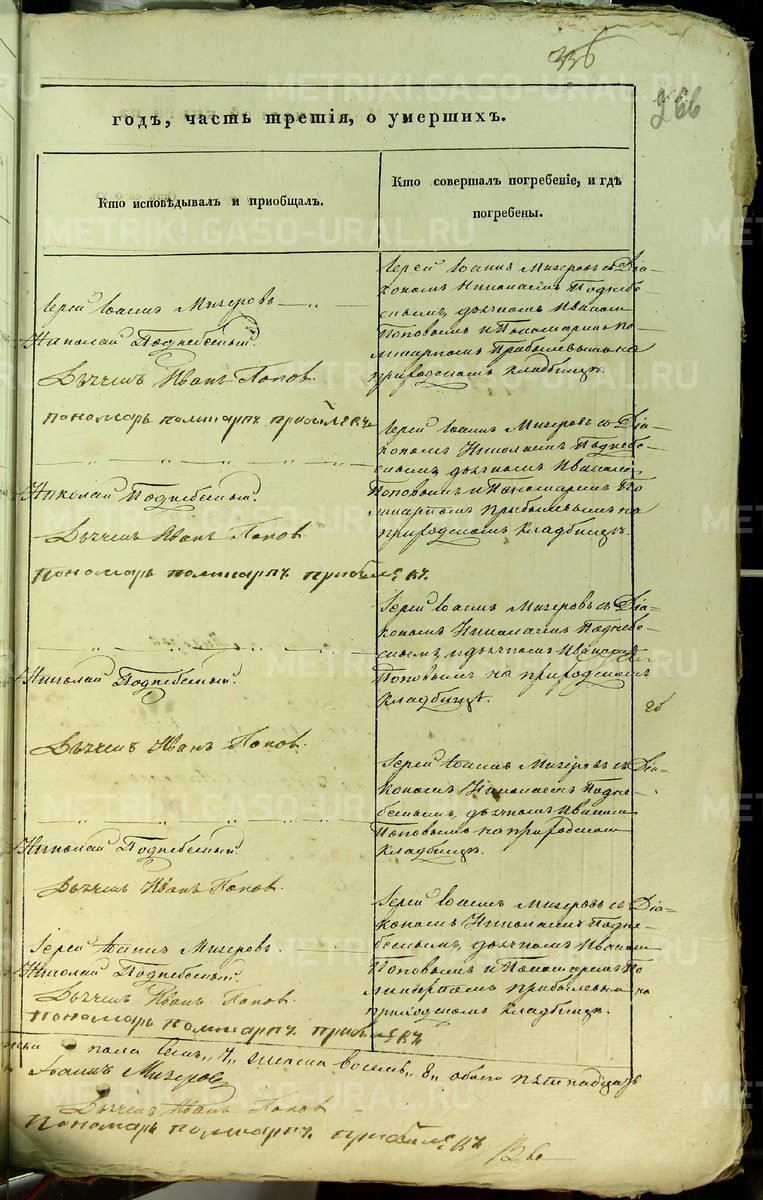 336
266
годѣ, часть третія, о умершихъ.
Кто исповѣдывалъ и пріобщалъ.
Кто совершалъ погребеніе, и гдѣ
погребены.
Іерей Іоаннъ Мизеровъ
Николай Поднебесный.
Дьячекъ Иванъ Попов.
Пономарь Полікарпъ Прибылевъ
Іерей Іоаннъ Мизеровъ съ Діа-
кономъ Николаемъ Поднебе-
снымъ, дьячкомъ Иваномъ
Поповымъ и Пономаремъ По-
ликарпомъ Прибылевымъ на
приходскомъ кладбищѣ.
Николай Поднебесный.
Дьячекъ Иванъ Попов.
Пономарь Поликарпъ Прибылевъ.
Іерей Іоаннъ Мизеровъ съ Діа-
кономъ Николаемъ Поднебе-
снымъ, дьячкомъ Иваномъ
Поповымъ и Пономаремъ По
ликарпомъ Прибылевымъ на
приходскомъ кладбищѣ.
Николай Поднебесный.
Дьячекъ Иванъ Попов.
Іерей Іоаннъ Мизеровъ съ Діа-
кономъ Николаемъ Поднебе-
снымъ, и дьячкомъ Иваномъ
Поповымъ на приходскомъ
кладбищѣ.
Николай Поднебесный.
Дьячекъ Иванъ Попов.
Іерей Іоаннъ Мизеровъ съ Діа-
кономъ Николаемъ Подне-
беснымъ, дьячкомъ Иваномъ
Поповымъ на приходскомъ
кладбищѣ.
Іерей Іоаннъ Мизеровъ.
Николай Поднебесный.
Дьячекъ Иванъ Попов.
Пономарь Поликарпъ Прибылевъ
Іерей Іоаннъ Мизеровъ съ Діа-
кономъ Николаемъ Подне-
беснымъ, дьячкомъ Иваномъ
Поповымъ и Пономаремъ По
ликарпомъ Прибылевым на
приходскомъ кладбищѣ.
пола семь, 7, женска восемь, 8, обоего пятнадцать
Іоаннъ Мизеровъ
Дьячекъ Иванъ Попов
Пономарь Поликарпъ Прибылевъ
METRIKI.GASO-URAL.RU